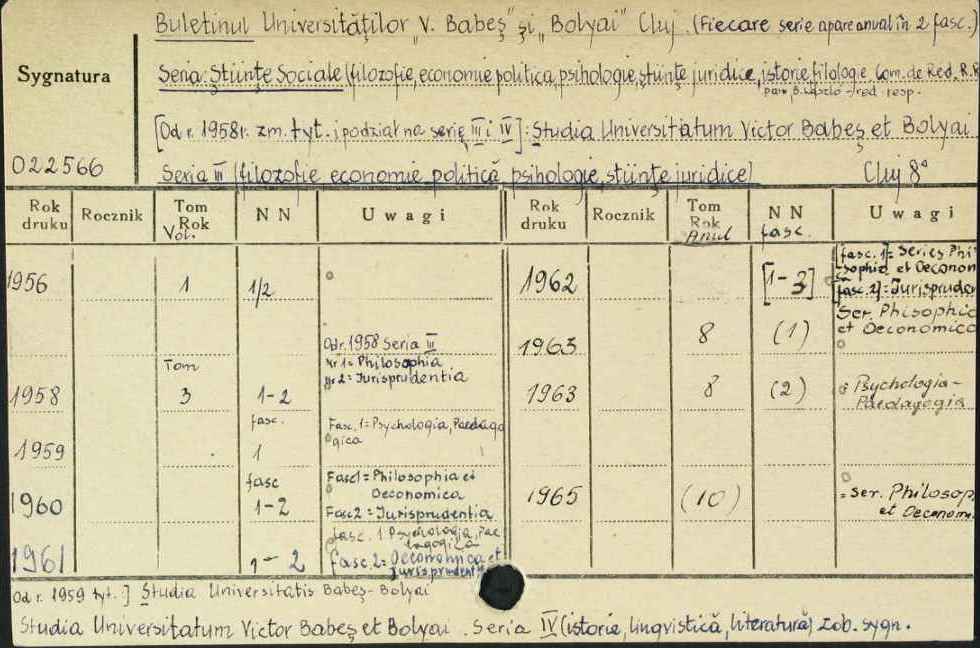 Buletinul Universităților „V. Babeș" și „Bolyai" Cluj. (Fiecare serie apare anual în 2 fasc.)
Sygnatura
Seria: Științe Sociale (filozofie, economie politica, psihologie, științe juridice, istorie, filologie Com. de Red. R.P.
red. resp.
[Od r. 1958r. zm. tyt. i podział na serię III i IV]: Studia Universitatum Victor Babeș et Bolyai.
022566
Seria III (filozofie economie politică psihologie, științe juridice) Cluj 8°
Rok druku Rocznik Tom Rok Vol. NN Uwagi Rok druku Rocznik Tom Rok Anul NN fasc. Uwagi
1956 1 1/2
1962 [1-3] [fasc. 1]= Series Phi
sophia et Oeconom
[fasc. 2]= Jurispruden
Od r. 1958 Seria III
nr 1= Philosophia
nr 2= Jurisprudentia
1963 8 (1) Ser. Phisophic
et Oeconomica
Tom
1958 3 1-2
1963 8 (2) Psychologia-
Paedagogia
fasc.
1959 1 Fasc. 1= Psychologia, Paedago
gica
fasc
1960 1-2 Fasc1= Philosophia et
Oeconomica
Fasc2= Jurisprudentia
1965 (10) = Ser. Philosop
et Oeconom.
1961 1-2 fasc. 1 Psychologia, Pae
dagogica
fasc. 2= Oeconomica et
Jurisprudent
Od r. 1959 tyt. ] Studia Universitatis Babeș-Bolyai
Studia Universitatum Victor Babeș et Bolyai. Seria IV (istorie, lingvistică, literatură) zob. sygn.